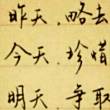 昨天，略去
今天，珍惜
明天，争取